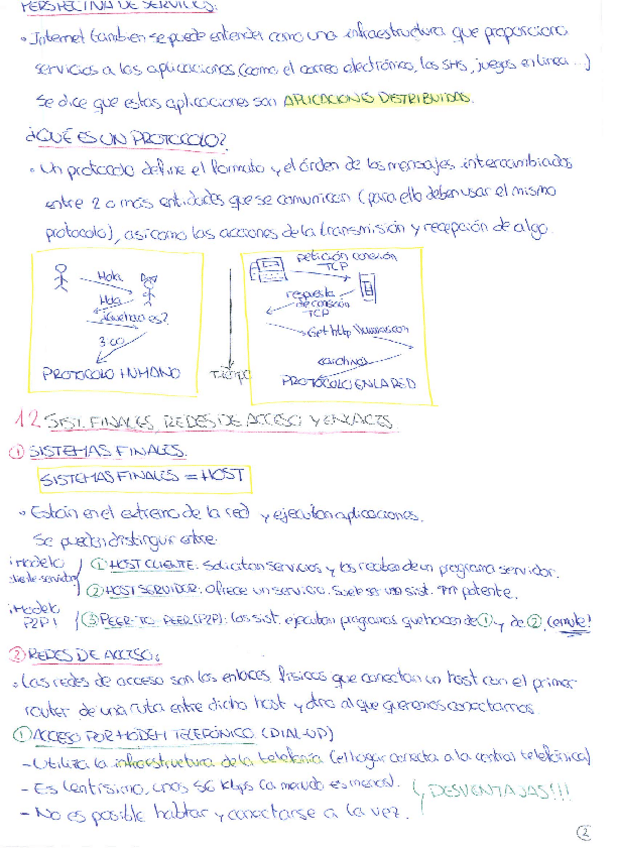 PERSPECTIVA DE SERVICIOS:
• Internet también se puede entender como una infraestructura que proporciona
servicios a las aplicaciones (como el correo electrónico, los SMS, juegos en línea...)
Se dice que estas aplicaciones son APLICACIONES DISTRIBUIDAS.
¿QUÉ ES UN PROTOCOLO?
• Un protocolo define el formato y el órden de los mensajes intercambiados
entre 2 o más entidades que se comunican (para ello deben usar el mismo
protocolo), así como las acciones de la transmisión y recepción de algo.
Hola
Hola
¿Qué hora es?
3:00
PROTOCOLO HUMANO
Tiempo
petición conexión
TCP
respuesta
de conexión
TCP
Get http
<archivo>
PROTOCOLO EN LA RED
1.2 SIST. FINALES, REDES DE ACCESO Y ENLACES
① SISTEMAS FINALES:
SISTEMAS FINALES = HOST
• Están en el extremo de la red y ejecutan aplicaciones.
Se pueden distinguir entre:
¡Modelo
cliente-servidor!
① HOST CLIENTE: Solicitan servicios y los reciben de un programa servidor.
② HOST SERVIDOR: Ofrece un servicio. Suele ser un sist. potente.
¡Modelo
P2P!
③ PEER-TO-PEER (P2P): Los sist. ejecutan programas que hacen de ① y de ② (emule!)
② REDES DE ACCESO:
• Las redes de acceso son los enlaces físicos que conectan un host con el primer
router de una ruta entre dicho host y otro al que queremos conectarnos.
① ACCESO POR MODEM TELEFÓNICO (DIAL-UP)
- Utiliza la infraestructura de la telefonía (el hogar conecta a la central telefónica)
- Es lentísimo, unos 56 Kbps (a menudo es menos).
- No es posible hablar y conectarse a la vez.
DESVENTAJAS!!!
2